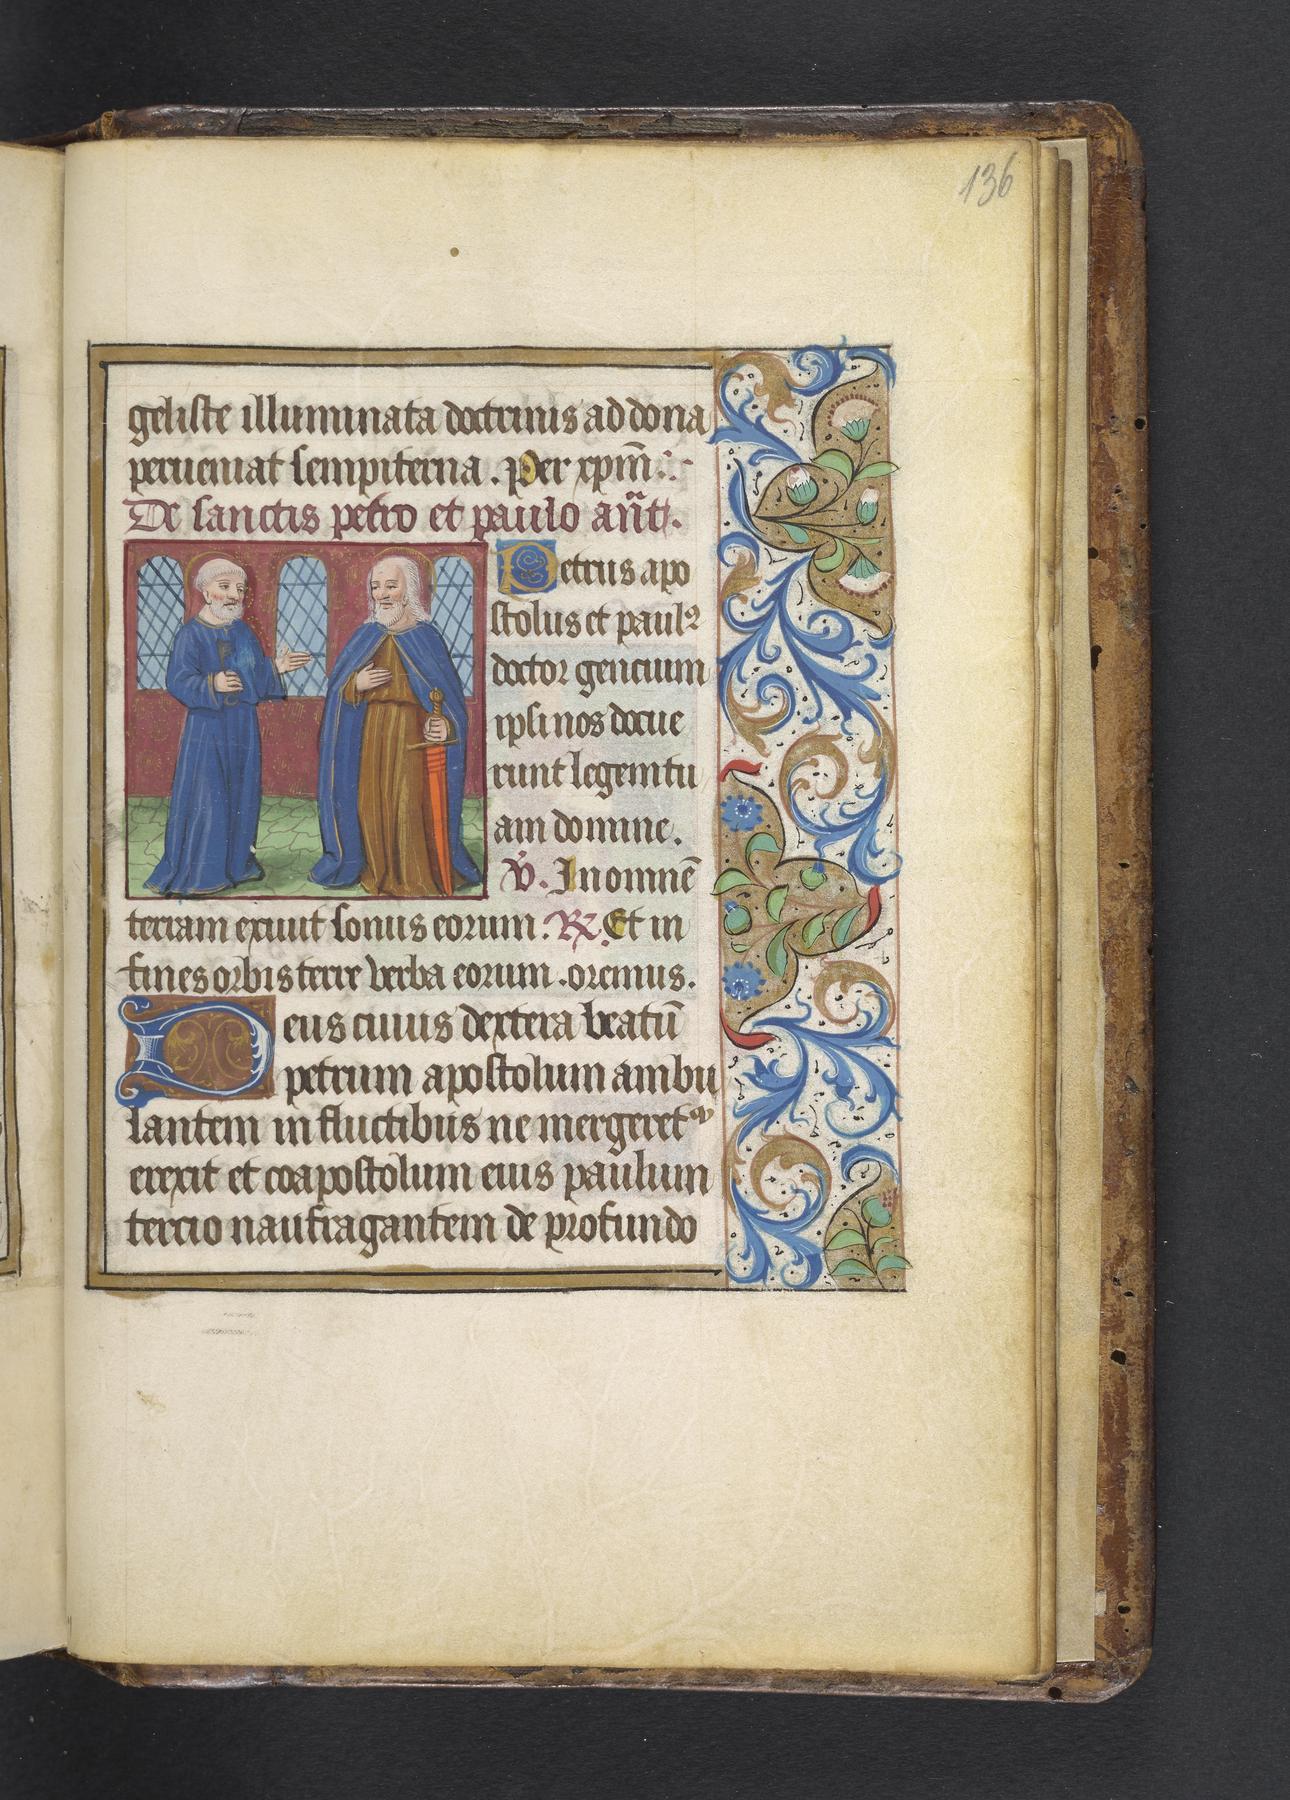 136
geliste illuminata doctrinis ad dona
perueniat sempiterna. Per xpm̄.
De sanctis petro et paulo añt.
Petrus apo
stolus et paulꝰ
doctor gencium
ipsi nos docue
runt legem tu
am domine.
V. In omnē
terram exiuit sonus eorum. R. Et in
fines orbis terre verba eorum. oremus.
Deus cuius dextera beatū
petrum apostolum ambu
lantem in fluctibus ne mergeretᷣ
erexit et coapostolum eius paulum
tercio naufragantem de profundo